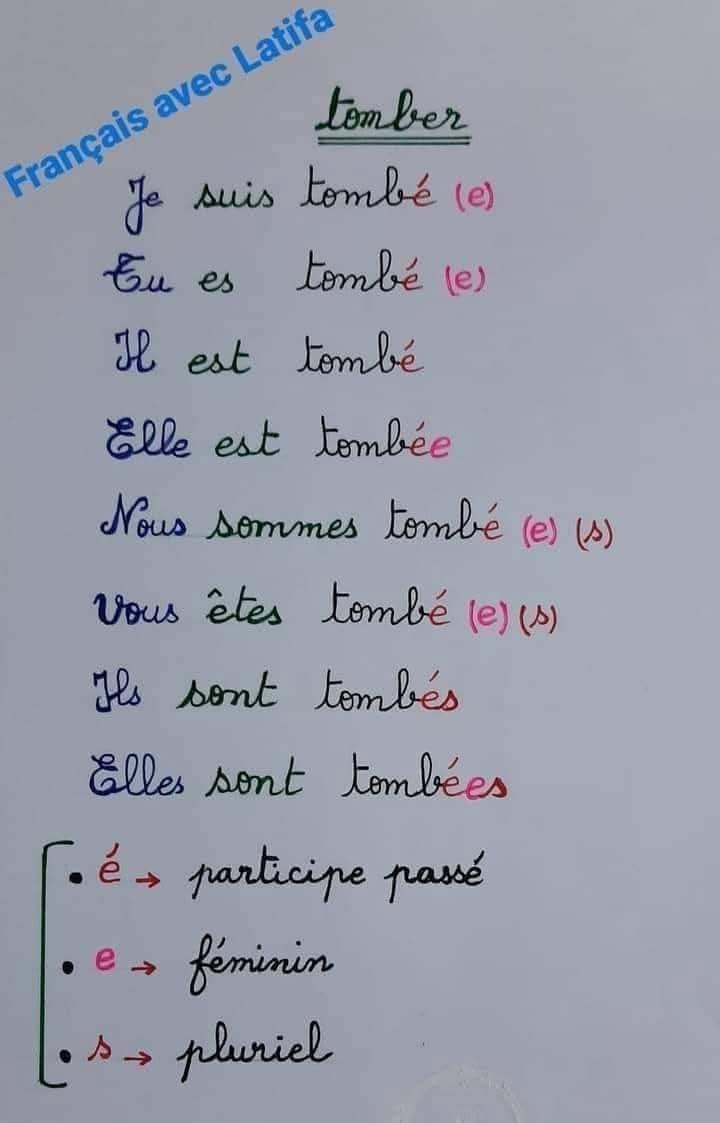 Français avec Latifa
tomber
Je suis tombé (e)
Tu es tombé (e)
Il est tombé
Elle est tombée
Nous sommes tombé (e) (s)
Vous êtes tombé (e) (s)
Ils sont tombés
Elles sont tombées
• é → participe passé
• e → féminin
• s → pluriel